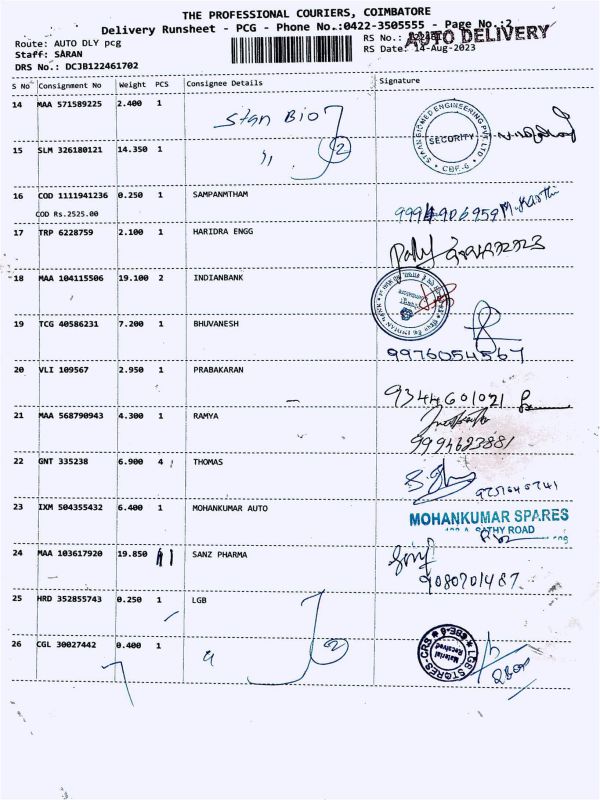 THE PROFESSIONAL COURIERS, COIMBATORE
Delivery Runsheet - PCG - Phone No.:0422-3505555 - Page No.:2
AUTO DELIVERY
Route: AUTO DLY pcg
RS No.:
Staff: SARAN
RS Date: 14-Aug-2023
DRS No.: DCJB122461702
S No Consignment No Weight PCS Consignee Details Signature
14 MAA 571589225 2.400 1 Stan Bio
SECURITY
CBF-6
15 SLM 326180121 14.350 1 " 2
16 COD 1111941236 0.250 1 SAMPANMTHAM
COD Rs.2525.00
17 TRP 6228759 2.100 1 HARIDRA ENGG
18 MAA 104115506 19.100 2 INDIANBANK
19 TCG 40586231 7.200 1 BHUVANESH
9976054567
20 VLI 109567 2.950 1 PRABAKARAN
9344601021
21 MAA 568790943 4.300 1 RAMYA
9994623881
22 GNT 335238 6.900 4 THOMAS
23 IXM 504355432 6.400 1 MOHANKUMAR AUTO
MOHANKUMAR SPARES
SATHY ROAD
24 MAA 103617920 19.850 SANZ PHARMA
9080701487
25 HRD 352855743 0.250 1 LGB
26 CGL 30027442 0.400 1 " 2
LGB STORES-CRS
Material
Received